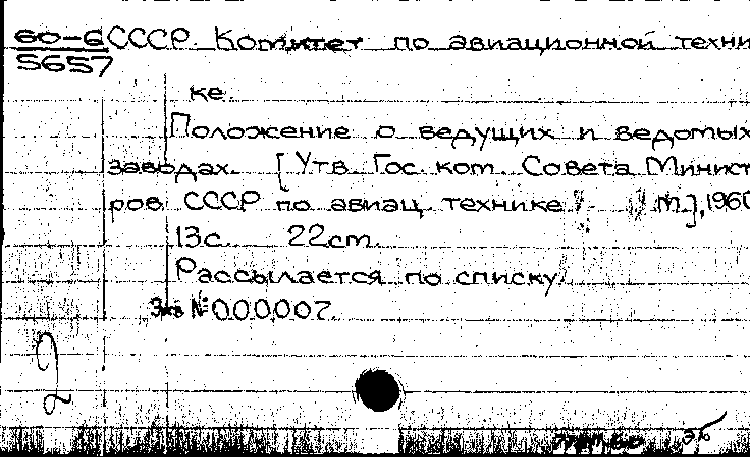 60-6 СССР. Комитет по авиационной техни
5657
ке.
Положение о ведущих и ведомых
заводах. [Утв. Гос. ком. Совета Минист
ров СССР по авиац. технике М.], 1960
13с. 22см.
Рассылается по списку.
Экз №000007.
2